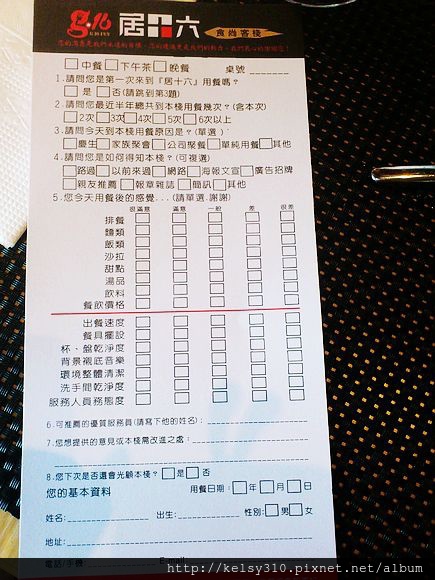 g.16 居十六 食尚客棧
您的滿意是我們永遠的省橫，您的建議更是我們的動力，我們衷心的謝謝您！
□中餐 □下午茶 □晚餐 桌號______
1.請問您是第一次來到『居十六』用餐嗎？
□是 □否(請跳到第3題)
2.請問您最近半年總共到本棧用餐幾次？(含本次)
□2次 □3次 □4次 □5次 □6次以上
3.請問今天到本棧用餐原因是？(單選)
□慶生 □家族聚會 □公司聚餐 □單純用餐 □其他
4.請問您是如何得知本棧？(可複選)
□路過 □以前來過 □網路 □海報文宣 □廣告招牌
□親友推薦 □報章雜誌 □簡訊 □其他
5.您今天用餐後的感覺...(請單選.謝謝)
很滿意 滿意 一般 差 很差
排餐 □ □ □ □ □
麵類 □ □ □ □ □
飯類 □ □ □ □ □
沙拉 □ □ □ □ □
甜點 □ □ □ □ □
湯品 □ □ □ □ □
飲料 □ □ □ □ □
餐飲價格 □ □ □ □ □
出餐速度 □ □ □ □ □
餐具擺設 □ □ □ □ □
杯、盤乾淨度 □ □ □ □ □
背景襯底音樂 □ □ □ □ □
環境整體清潔 □ □ □ □ □
洗手間乾淨度 □ □ □ □ □
服務人員務態度 □ □ □ □ □
6.可推薦的優質服務員(請寫下他的姓名)：
7.您想提供的意見或本棧需改進之處：
8.您下次是否還會光顧本棧？□是 □否
您的基本資料 用餐日期：□年□月□日
姓名： 出生： 性別：□男□女
地址：
電話/手機： Email
http://kelsy310.pixnet.net/album